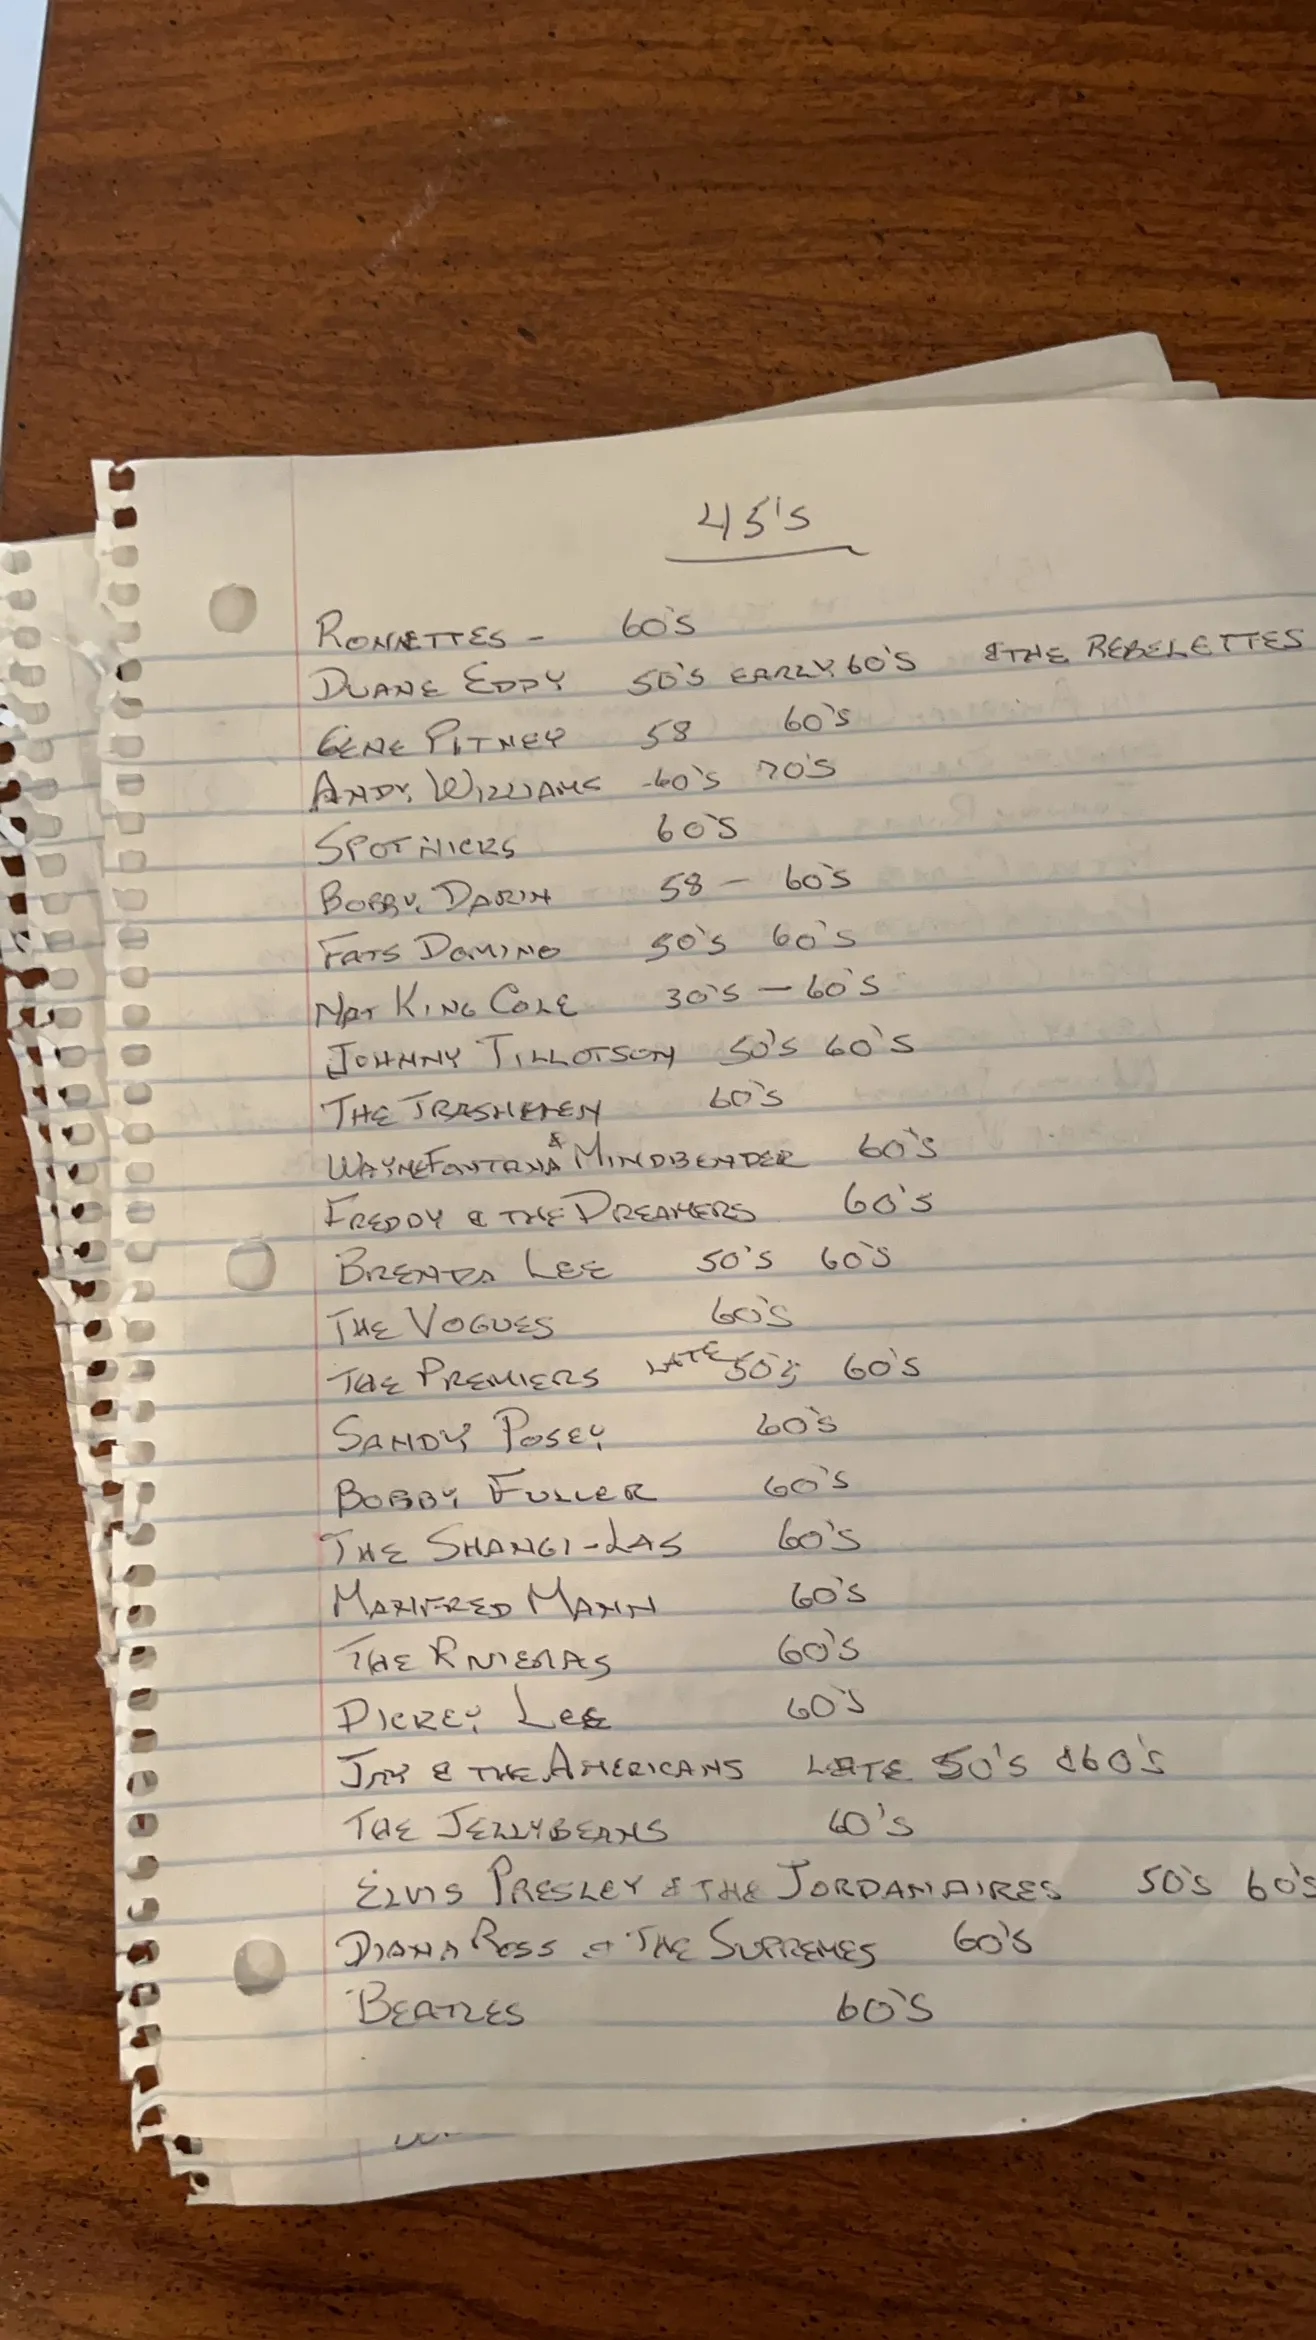 45's
RONNETTES - 60'S
DUANE EDDY 50'S EARLY 60'S & THE REBELETTES
GENE PITNEY 58 60'S
ANDY WILLIAMS -60'S 70'S
SPOTNICKS 60'S
BOBBY DARIN 58 - 60'S
FATS DOMINO 50'S 60'S
NAT KING COLE 30'S - 60'S
JOHNNY TILLOTSON 50'S 60'S
THE TRASHEMEN 60'S
WAYNE FONTANA & MINDBENDER 60'S
FREDDY & THE DREAMERS 60'S
BRENDA LEE 50'S 60'S
THE VOGUES 60'S
THE PREMIERS LATE 50'S 60'S
SANDY POSEY 60'S
BOBBY FULLER 60'S
THE SHANGI-LAS 60'S
MANFRED MANN 60'S
THE RIVIERAS 60'S
DICKEY LEE 60'S
JAY & THE AMERICANS LATE 50'S & 60'S
THE JELLYBEANS 60'S
ELVIS PRESLEY & THE JORDANAIRES 50'S 60'S
DIANA ROSS & THE SUPREMES 60'S
BEATLES 60'S